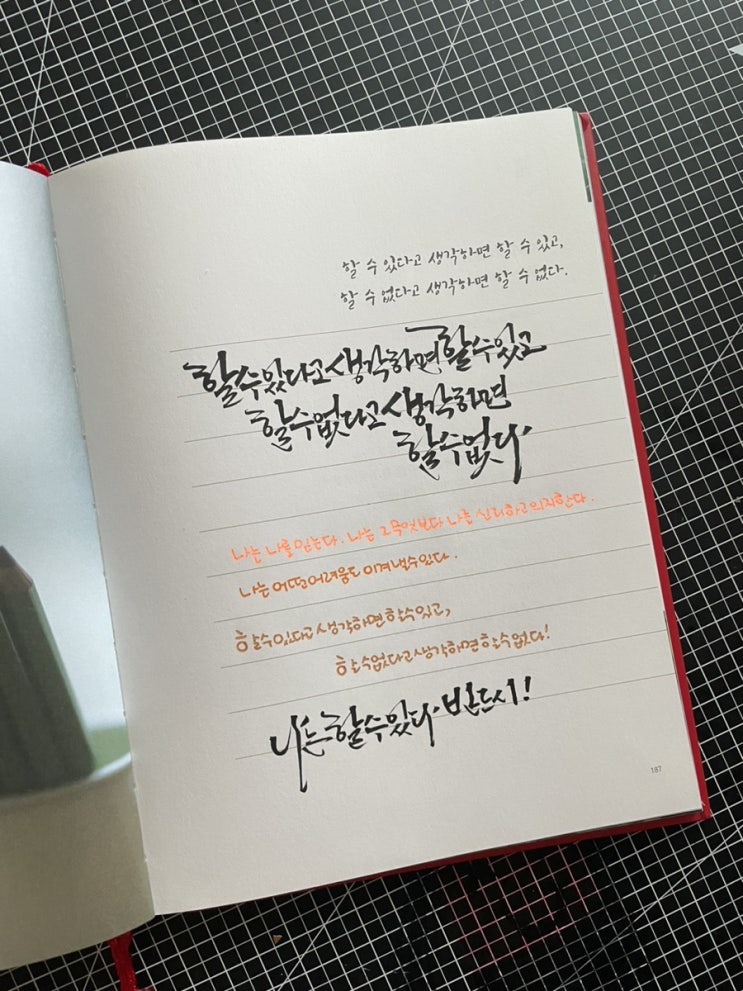 할 수 있다고 생각하면 할 수 있고,
할 수 없다고 생각하면 할 수 없다.
할수있다고생각하면할수있고
할수없다고생각하면
할수없다.
나는 나를 믿는다. 나는 그무엇보다 나는 신뢰하고의지한다.
나는 어떤어려움도 이겨낼수있다.
할수있다고생각하면할수있고,
할수없다고생각하면할수없다!
나는할수있다. 반드시!
187